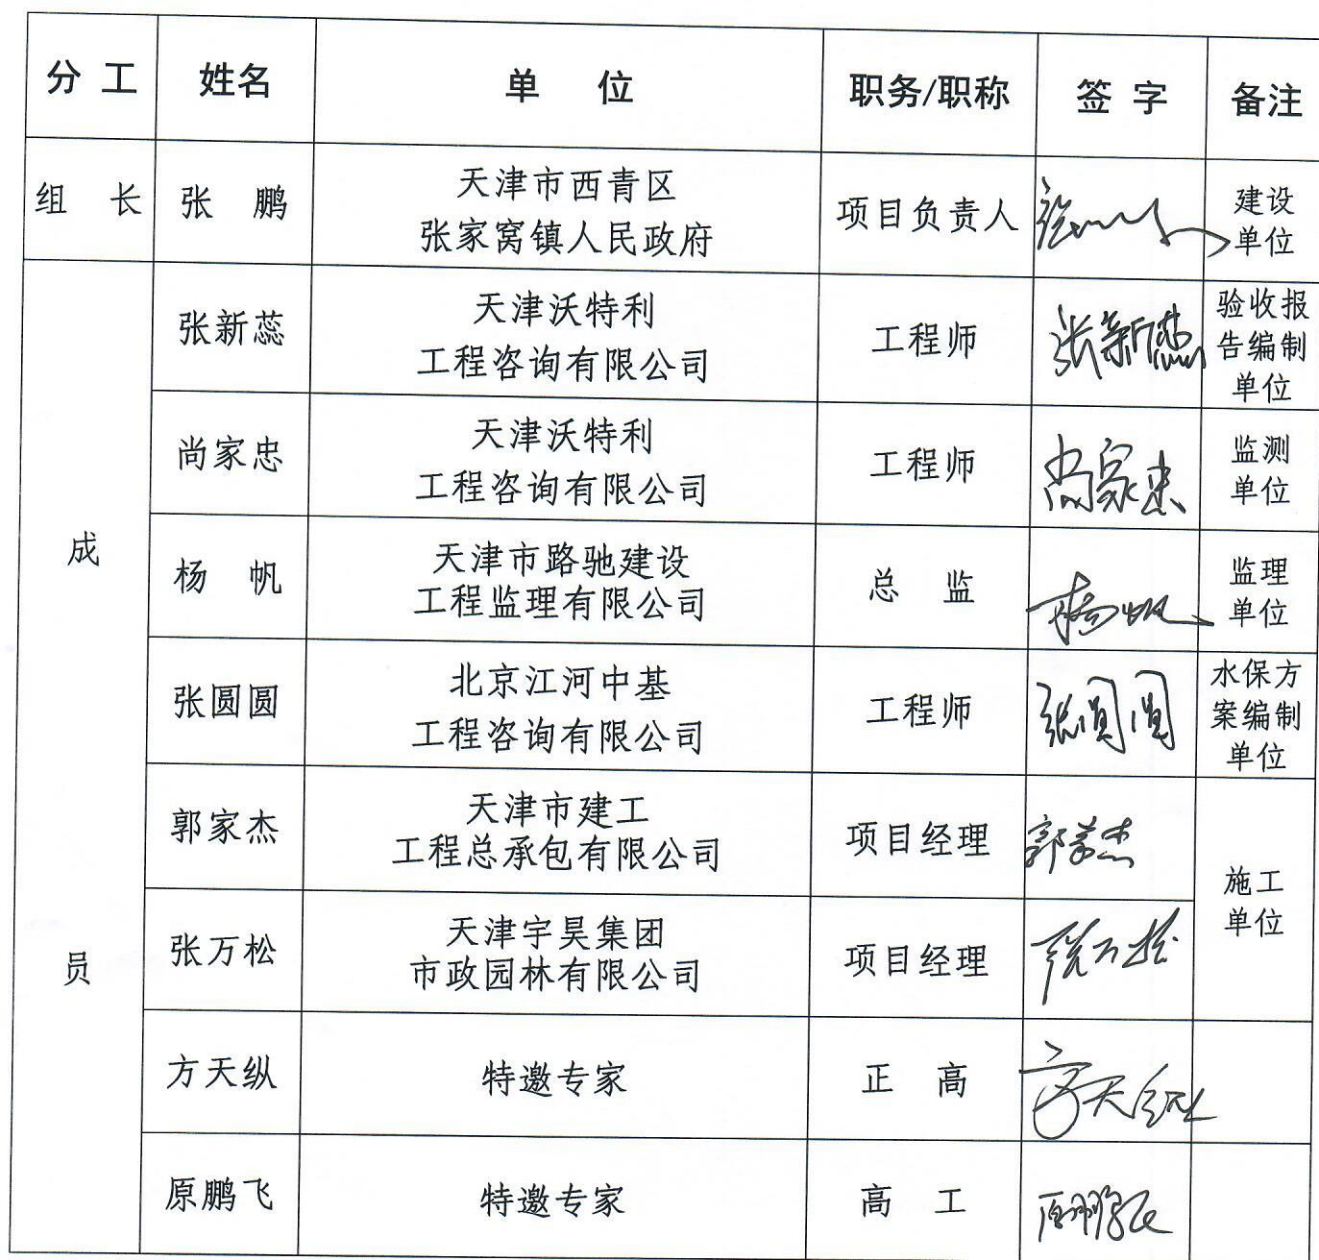 分 工 姓名 单 位 职务/职称 签 字 备注
组 长 张 鹏 天津市西青区 张家窝镇人民政府 项目负责人 建设 单位
成 员
张新蕊 天津沃特利 工程咨询有限公司 工程师 张新蕊 验收报 告编制 单位
尚家忠 天津沃特利 工程咨询有限公司 工程师 尚家忠 监测 单位
杨 帆 天津市路驰建设 工程监理有限公司 总 监 杨帆 监理 单位
张圆圆 北京江河中基 工程咨询有限公司 工程师 张圆圆 水保方 案编制 单位
郭家杰 天津市建工 工程总承包有限公司 项目经理 郭家杰 施工 单位
张万松 天津宇昊集团 市政园林有限公司 项目经理 张万松
方天纵 特邀专家 正 高 方天纵
原鹏飞 特邀专家 高 工 原鹏飞